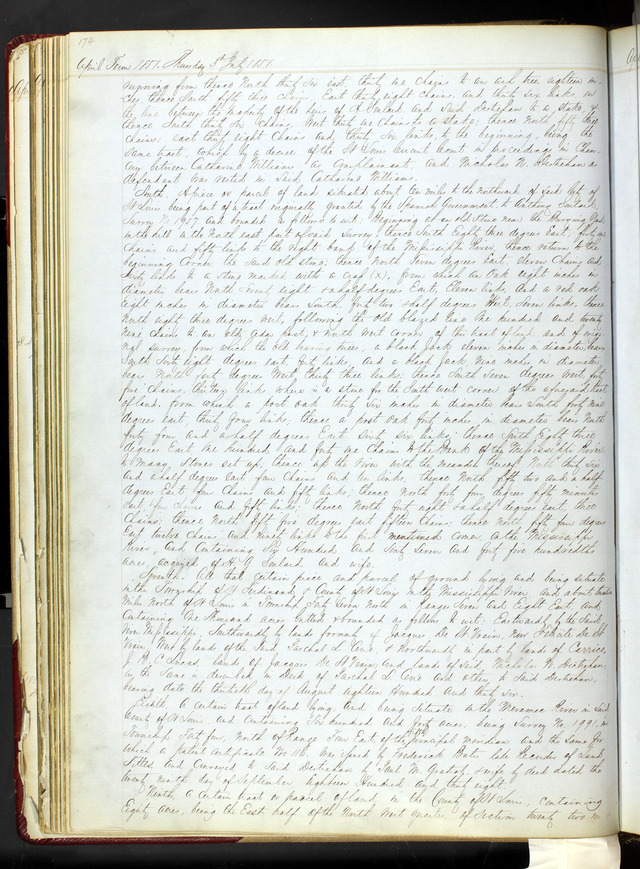 174
April Term 1851. Thursday 3d July 1851
running from thence North thirty six east, thirty one chains to an ash tree eighteen in
thence North fifty three chains, East thirty eight chains, and thirty six links, on
the line between the property of the heirs of A Soulard and said Destrehan to a stake, &
thence South chains West thirty one Chains to a stake; thence North fifty three
chains; east thirty eight Chains and thirty six links to the beginning, being the
same tract, which by a decree of the St Louis Circuit Court in proceedings in Chan
cery between Catharine Williams as Complainant, and Nicholas N. Destrehan as
defendant was vested in said Catharine Williams.
Sixth. A piece or parcel of land situated about ten miles to the northward of said City of
St Louis being part of a tract originally granted by the Spanish Government to Antoine Soulard
Survey No and bounded as follows to wit. Beginning at an old stone near the Burning
on the hill in the north east part of said Survey; thence South Eighty three degrees East,
Chains and fifty links to the right bank of the Mississippi River, thence return to the
beginning corner the said old stone; thence North Seven degrees East Eleven Chains and
links to a stone marked with a cross (x), from which an oak eight inches in
diameter bears North twenty eight & a half degrees East, Eleven links, and a red oak
eight inches in diameter bears South forty two & half degrees West, Seven links, thence
North eight three degrees West, following the old blazed line One hundred and twenty
nine chains to an old Cedar post, a North West corner of the tract of land and of orig
inal survey, from which the old bearing trees, a black Jack eleven inches in diameter, bears
South Forty eight degrees east forty links, and a black Jack Nine inches in diameter
bears North forty degrees West thirty three links; thence South Seven degrees West forty
five chains, thirty links where is a stone for the South west corner of the aforesaid tract
of land, from which a post oak thirty six inches in diameter bears South forty nine
degrees east thirty four links; thence a post oak forty inches in diameter bears North
forty four and a half degrees East Sixty six links; thence South Eighty three
degrees East One hundred and forty one Chains to the Bank of the Mississippi River,
to Many Stones set up; thence up the River with the meanders thereof North thirty six
and a half degrees east four Chains and ten links; thence North fifty two and a half
degrees East, four Chains and fifty links; thence North forty four degrees fifty minutes
East four Chains and fifty links; thence North forty eight & a half degrees east, two
Chains; thence North fifty five degrees east fifteen Chains; thence North fifty four degrees
East twelve Chains and Ninety links to the first mentioned corner, on the Mississippi
River, and Containing Six Hundred and Sixty Seven and forty five hundredths
acres, acquired of H. G. Soulard and wife.
Seventh. All that Certain piece and parcel of ground lying and being situate
in the Township of St Ferdinand, & County of St Louis on the Mississippi River, and about twelve
Miles North of St Louis in Township Forty Seven North in Ranges Seven and Eight East, and
Containing One thousand acres, butted & bounded as follows to wit: Eastwardly by the said
River Mississippi, Southwardly by land formerly of Jacques De St Vrain, Now Felicite De St
Vrain, West by lands of the said Paschal L. Cerre, & Northwardly in part by lands of Carrico,
J. B. C. Lucas, lands of Jacques De St Vrain, and lands of said Nicholas N. Destrehan,
as the same is described in Deed of Paschal L. Cerre and others to said Destrehan,
bearing date the thirtieth day of August eighteen hundred and thirty six.
Eighth. A Certain tract of land lying and being situate on the Maramec River in said
County of St Louis and Containing Six hundred and forty acres, being Survey No. 1991, in
Township Forty four North of Range Five East of the fifth principal meridian and the same for
which a patent certificate No 116 was issued by Frederick Bates late Recorder of Land
Titles and Conveyed to said Destrehan by Paul M. Gratiot & wife by deed dated the
twenty ninth day of September eighteen hundred and thirty eight.
Ninth. A Certain tract or parcel of land in the County of St Louis, containing
Eighty acres, being the East half of the North West quarter of Section twenty two in